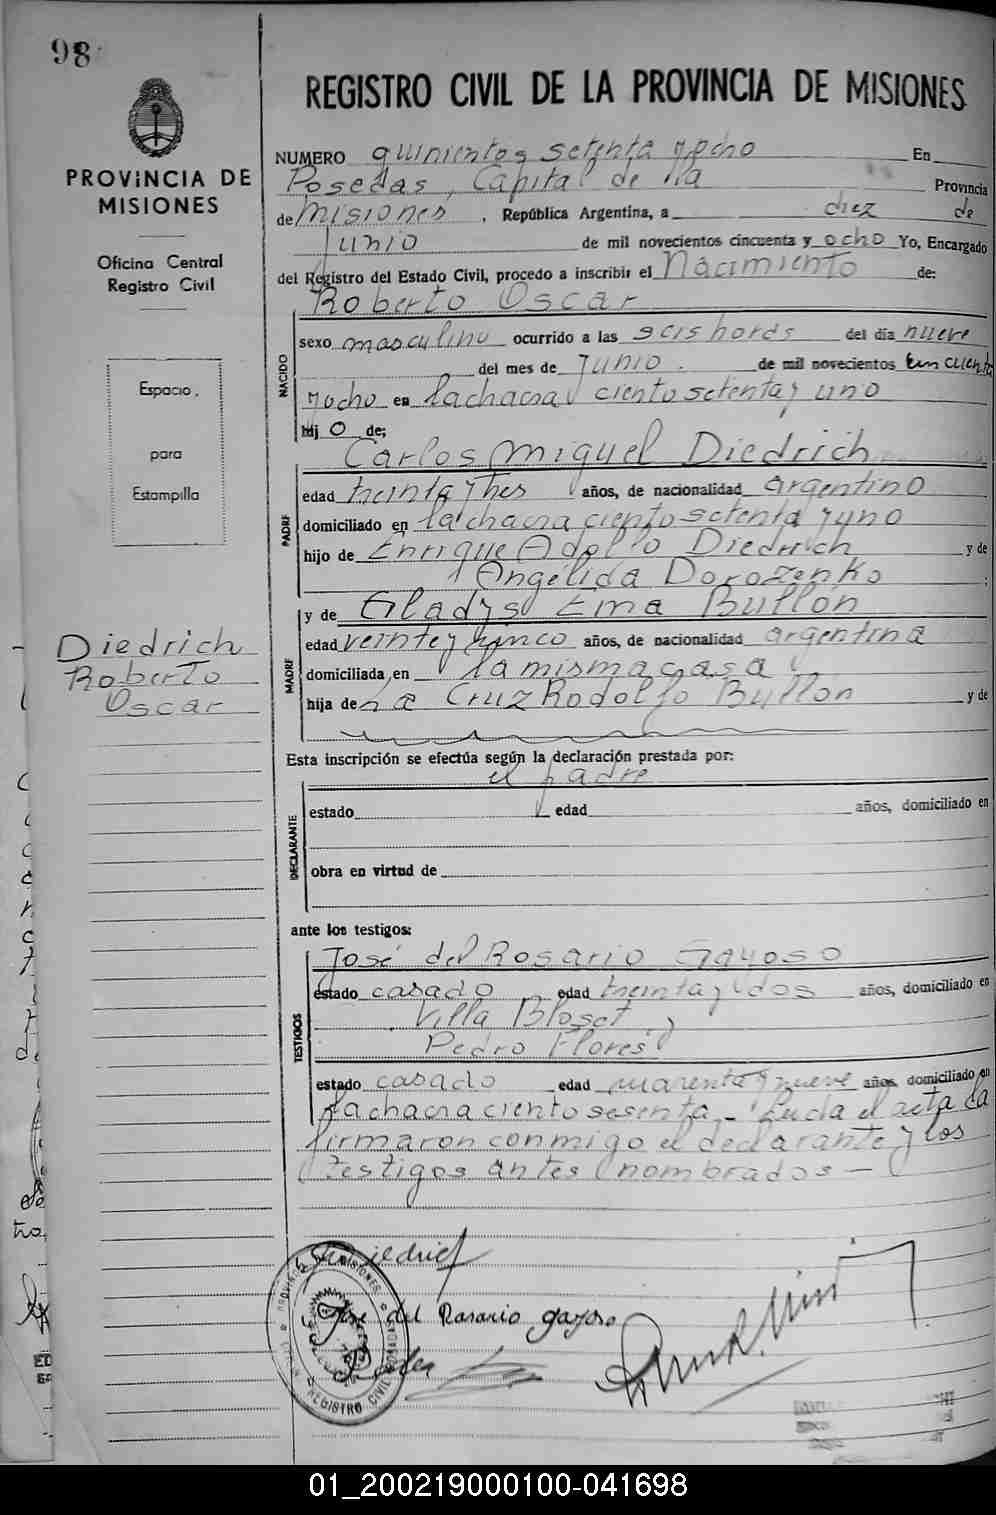 98
REGISTRO CIVIL DE LA PROVINCIA DE MISIONES
PROVINCIA DE
MISIONES
Oficina Central
Registro Civil
Espacio
para
Estampilla
Diedrich
Roberto
Oscar
NUMERO quinientos setenta y ocho En
Posedas, Capital de la Provincia
de Misiones, República Argentina, a diez de
Junio de mil novecientos cincuenta y ocho Yo, Encargado
del Registro del Estado Civil, procedo a inscribir el Nacimiento de:
Roberto Oscar
NACIDO
sexo masculino ocurrido a las seis horas del día nueve
del mes de Junio. de mil novecientos cincuenta
y ocho en la chacra ciento setenta y uno
hij o de;
Carlos Miguel Diedrich
PADRE
edad treinta y tres años, de nacionalidad argentino
domiciliado en la chacra ciento setenta y uno
hijo de Enrique Adolfo Diedrich y de
Angélida Dorozenko;
y de Gladys Ema Bullón
MADRE
edad veinte y cinco años, de nacionalidad argentina
domiciliada en la misma casa
hija de la Cruz Rodolfo Bullon y de
Esta inscripción se efectúa según la declaración prestada por:
el padre
DECLARANTE
estado edad años, domiciliado en
obra en virtud de
ante los testigos:
José del Rosario Gayoso
TESTIGOS
estado casado edad treinta y dos años, domiciliado en
Villa Bloset y
Pedro Flores
estado casado edad cuarenta y nueve años, domiciliado en
la chacra ciento sesenta - Leida el acta la
firmaron conmigo el declarante y los
testigos antes nombrados -
Diedrich
José del Rosario gayoso
PROVINCIA MISIONES
REGISTRO CIVIL
01_200219000100-041698